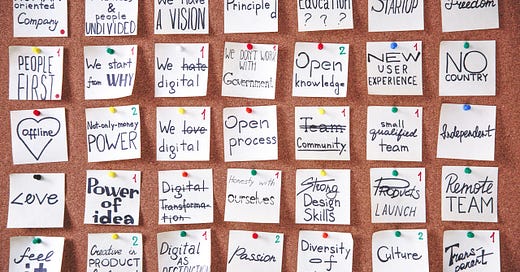 oriented
Company.
&
people
UNDIVIDED
We have
A VISION
Education
? ? ?
STARTUP
Freedom
PEOPLE
FIRST.
1
We start
from WHY
2
We hate
digital
1
We DON'T WORK
WITH
Government
1
Open
knowledge
2
NEW
USER
EXPERIENCE
NO
COUNTRY
offline
Not-only-money
POWER
2
We love
digital
1
Open
process
1
Team
Community
1
small
qualified
team
1
Independent
LOVE
Power of
idea
1
Digital
Transforma-
tion
1
Honesty with
ourselves
Strong
Design
Skills
1
Products
LAUNCH
1
Remote
TEAM
1
feel
it
Creative in
PRODUCT
2
Digital
AS
1
Passion
2
Diversity
of
1
Culture
2
1